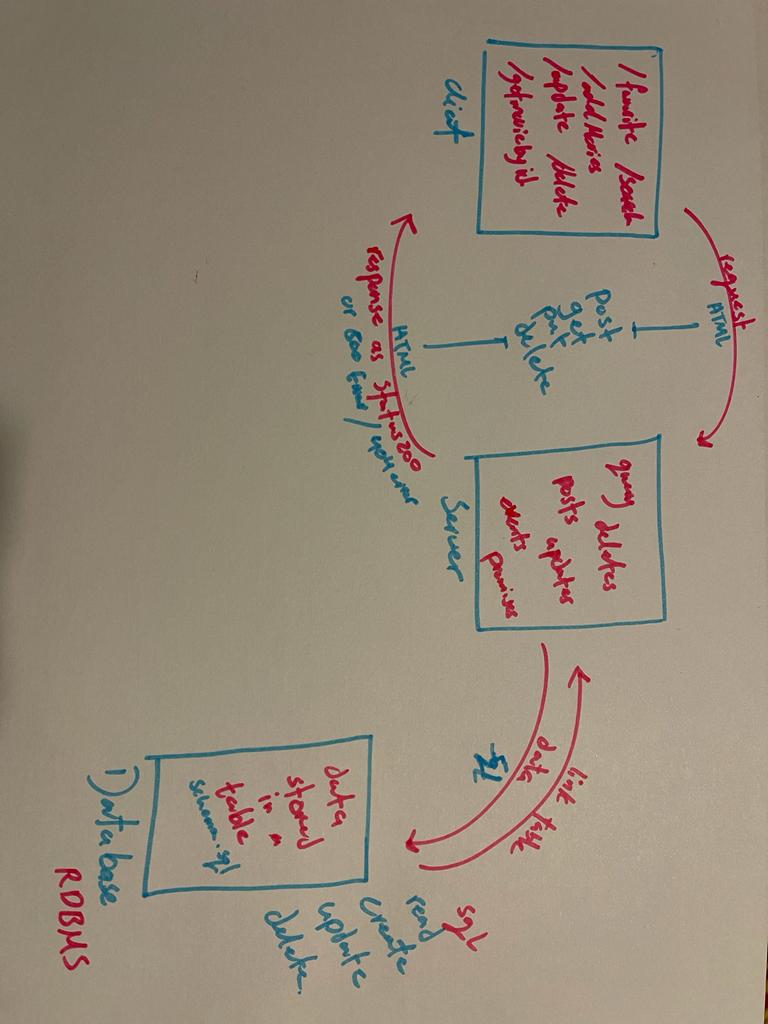 /favorite /search
/addMovies
/update /delete
/getmoviebyid
client
request
HTML
post
get
put
delete
HTML
response as status 200
or 500 Error /
query deletes
posts updates
events promises
Server
data
link
data
stored
in a
table
schema.sql
Database
RDBMS
sql
read
create
update
delete.